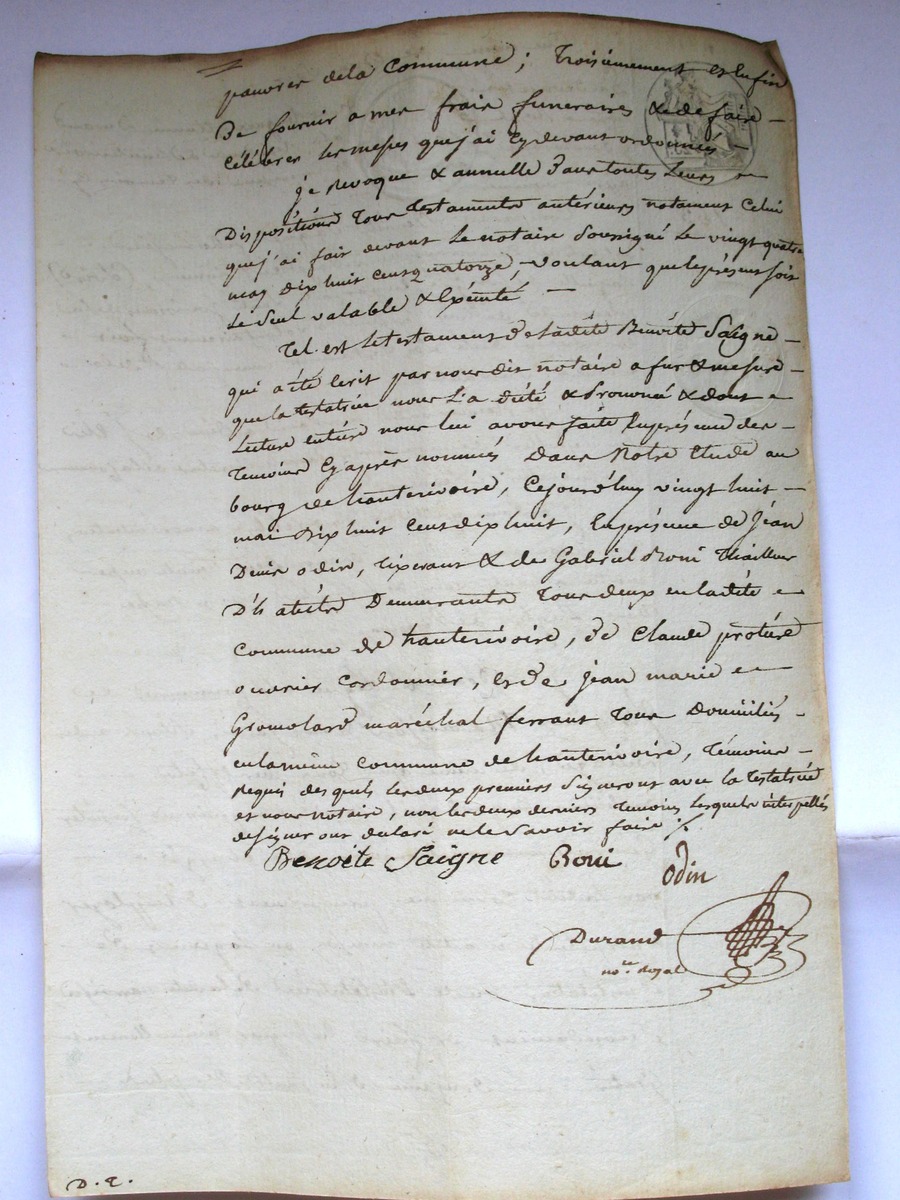 pauvres de la Commune; Troisiemement et Enfin
De fournir a mes frais funeraires & de faire
Célébrer les messes que j'ai Cy devant ordonnés
je Revoque & annulle Dans toutes Leurs
Dispositions Tous Testaments antérieurs notament Celui
que j'ai fait devant Le notaire Soussigné Le vingt quatre
may Dix huit Cent quatorze, voulant que le présent soit
Le Seul valable & Exécuté
Tel est le testament de Ladite Benoite Saigne
qui a été Ecrit par nous dit notaire a fur & mesure
que la testatrice nous L'a dicté & prononcé & dont
Lecture entière nous lui avons faite En présence des
Temoins Cy après nommés Dans Notre Etude au
bourg de hauterivoire, Cejourd'huy vingt huit
mai Dix huit Cent dix huit, En présence de Jean
Denis odin, Tixerant & de Gabriel Boni Thailleur
D'h abits Demeurants Tous deux en ladite
Commune de hauterivoire, de Claude protière
ouvrier Cordonnier, et de Jean marie
Gromolard maréchal ferrant Tous Domiciliés
en la même Commune de hauterivoire, Témoins
Requis des quels les deux premiers Signeront avec la Testatrice
et nous notaire, non les deux derniers Temoins Lesquels interpellés
de signer ont declaré ne le Savoir faire ./.
Benoite Saigne Boni
Odin
Durand
no.re Royal
D. E.